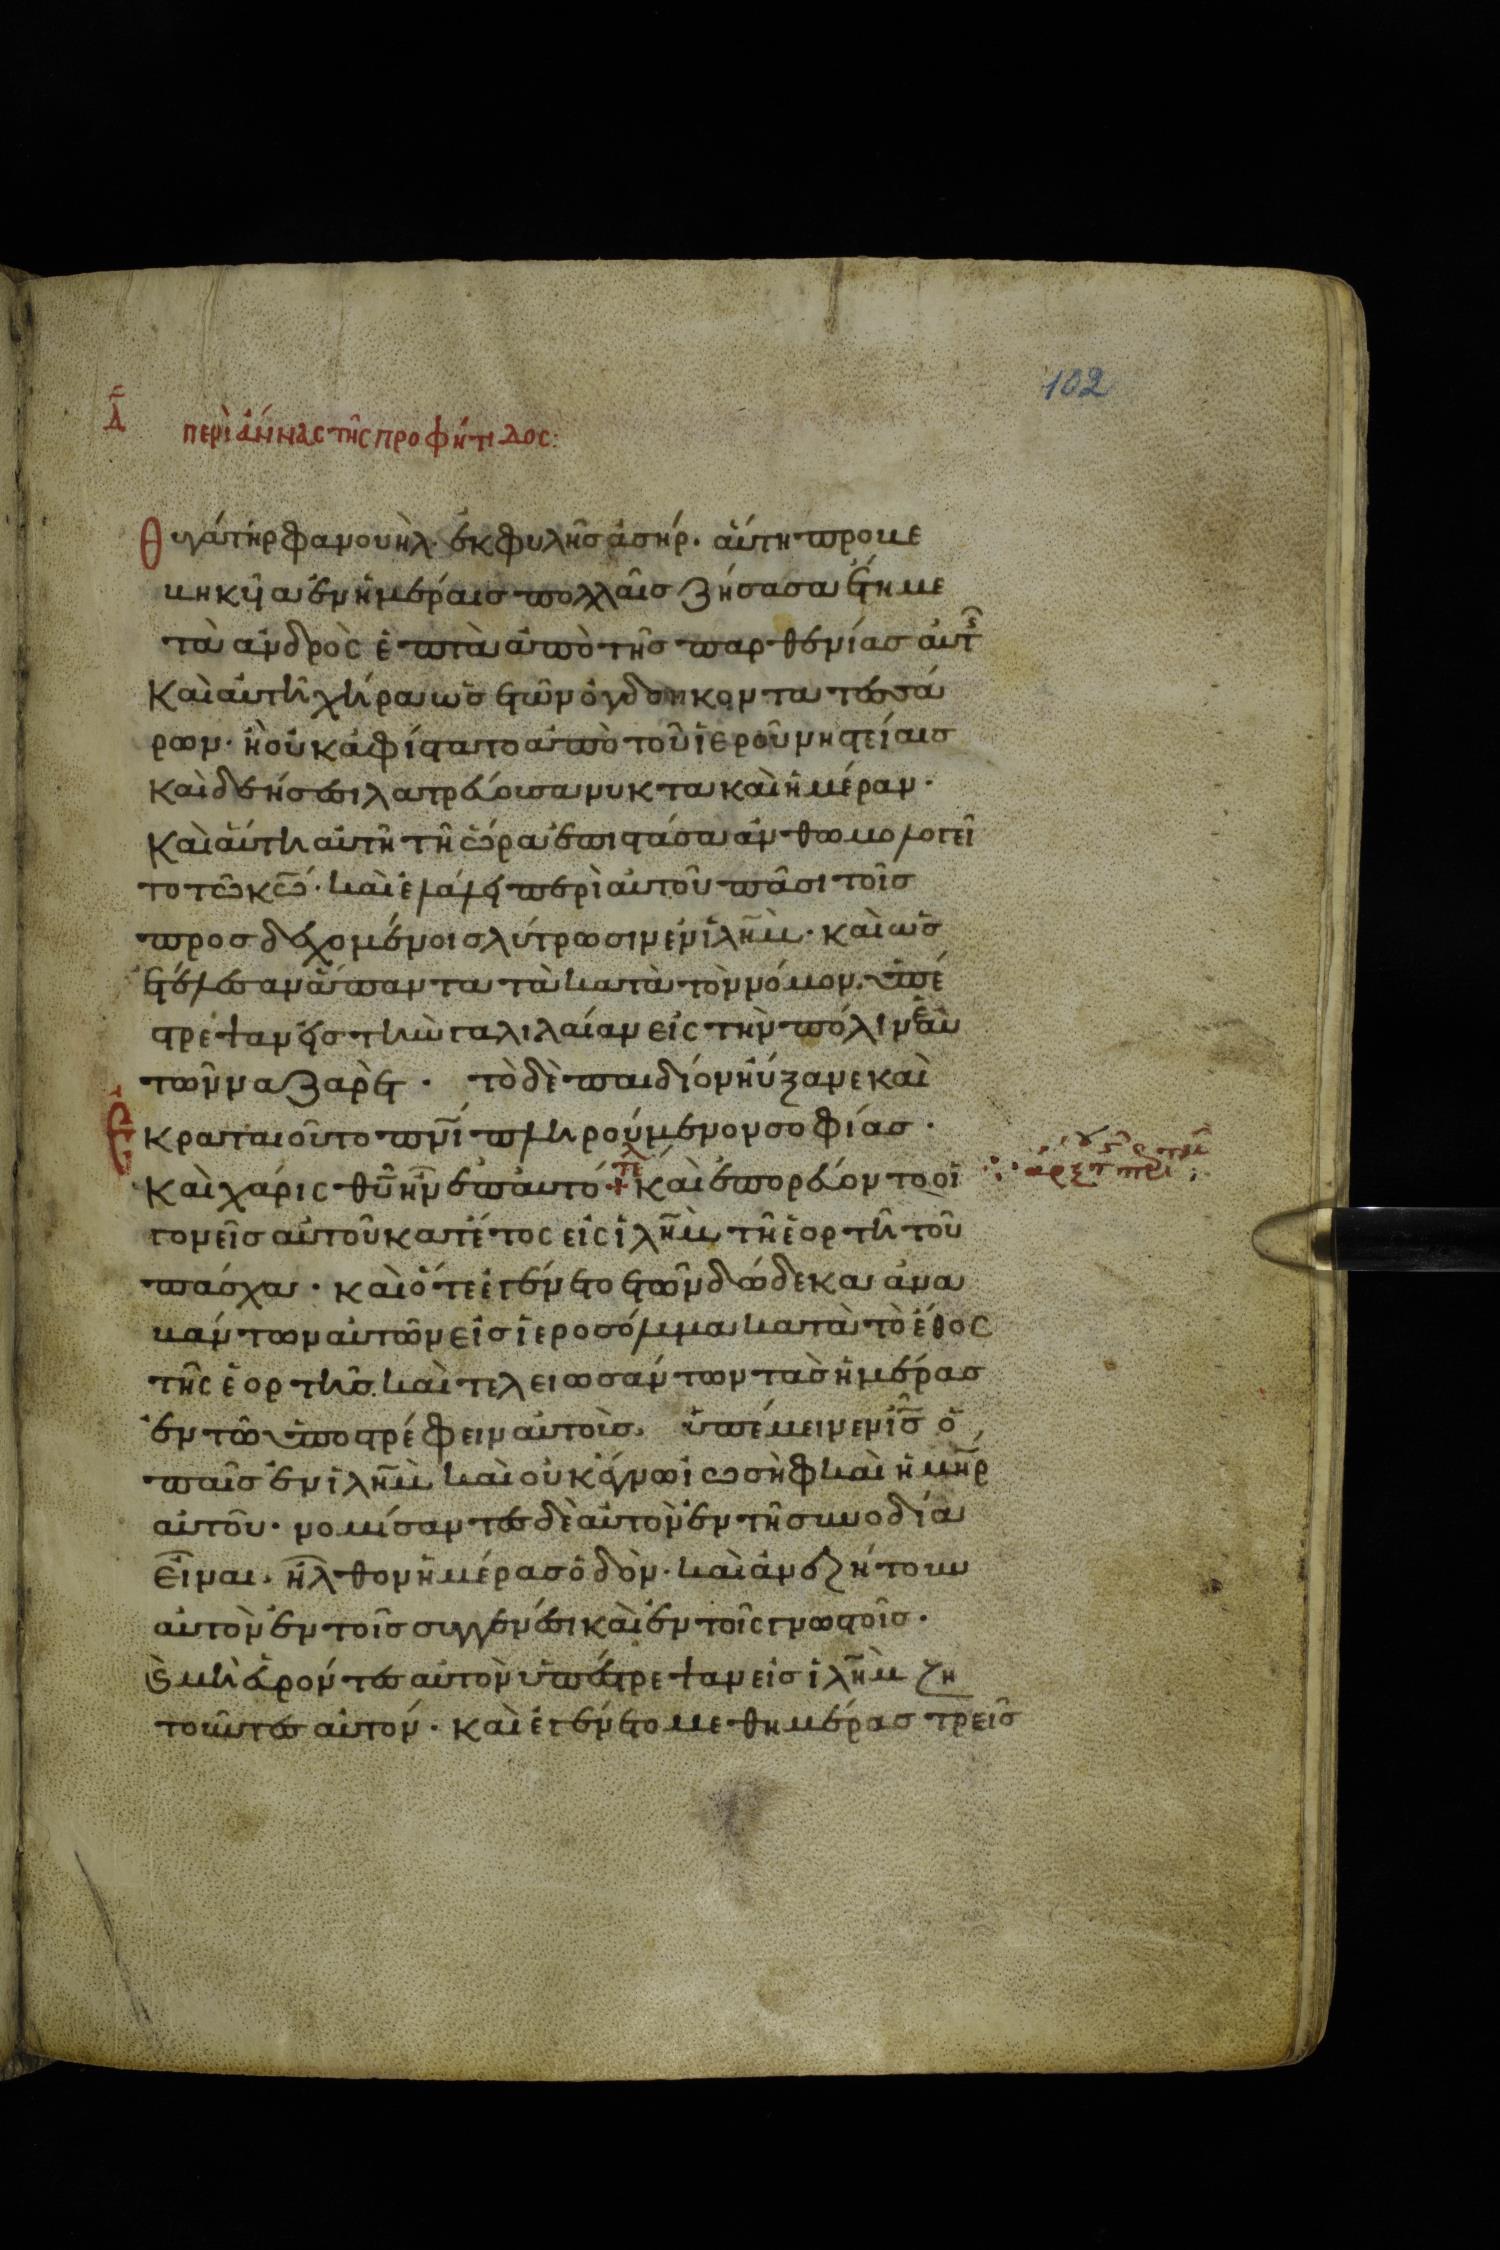 102
Δ̄ περὶ ἄννας τῆς προφήτιδος:
Θυγάτηρ φανουὴλ· ἐκ φυλῆς ἀσήρ. αὕτη προβε
βηκυῖα ἐν ἡμέραις πολλαῖς ζήσασα ἔτη με
τὰ ἀνδρὸς ἑπτὰ ἀπὸ τῆς παρθενίας αὐτῆς
καὶ αὐτὴ χήρα ὡς ἐτῶν ὀγδοήκοντα τεσσά
ρων· ἣ οὐκ ἀφίστατο ἀπὸ τοῦ ἱεροῦ νηστείαις
καὶ δεήσεσι λατρεύουσα νυκτα καὶ ἡμέραν·
καὶ αὕτη αὐτῆ τῆ ὥρα ἐπιστάσα ἀνθωμολογεῖ
το τῶ κ̄ω̄· καὶ ἐλάλει περὶ αὐτοῦ πᾶσι τοῖς
προσδεχομένοις λύτρωσιν ἐν ἰλη̄μ̀· καὶ ὡς
ἐτέλεσαν ἅπαντα τὰ κατὰ τὸν νόμον. ὑπέ
στρεψαν εἰς τὴν γαλιλαίαν εἰς τὴν πόλιν ἑαυ
τῶν ναζαρὲτ· τὸ δὲ παιδίον ηὔξανε καὶ
Ἐκραταιοῦτο πν̄ῑ πληρούμενον σοφίας·
καὶ χάρις θῡ ἦν ἐπ' αὐτό + τε̄λ καὶ ἐπορεύοντο οἱ
γονεῖς αὐτοῦ κατ' ἔτος εἰς ἰλη̄μ̀ τῆ ἑορτῆ τοῦ
πάσχα· καὶ ὅτε ἐγένετο ἐτῶν δώδεκα ἀνα
βάντων αὐτῶν εἰς ἱεροσόλυμα κατὰ τὸ ἔθος
τῆς ἑορτῆς. καὶ τελειωσάντων τὰς ἡμέρας
ἐν τῶ ὑποστρέφειν αὐτοὺς. ὑπέμεινεν ῑς̄ ὁ
παῖς ἐν ἰλη̄μ̀ καὶ οὐκ ἔγνω ἰωσὴφ καὶ ἡ μη̄ρ
αὐτοῦ· νομίσαντες δὲ αὐτὸν ἐν τῆ συνοδία
εἶναι. ἦλθον ἡμέρας ὁδὸν· καὶ ἀνεζήτουν
αὐτὸν ἐν τοῖς συγγενέσι καὶ ἐν τοῖς γνωστοῖς·
Καὶ μὴ εὑρόντες αὐτὸν ὑπέστρεψαν εἰς ἰλη̄μ̀ ζη
τοῦντες αὐτόν· καὶ ἐγένετο μεθ ημέρας τρεῖς